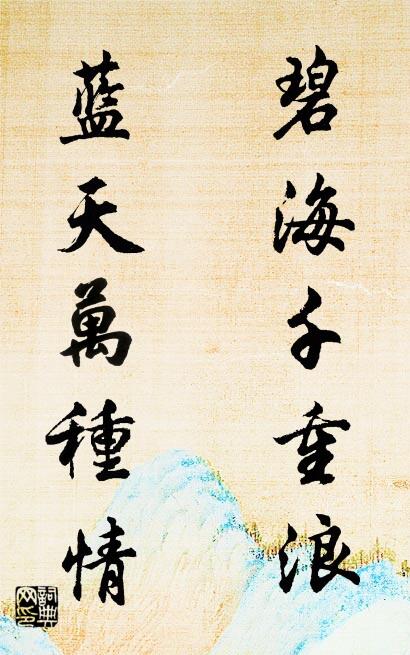 碧海千重浪
藍天萬種情
詞典網印